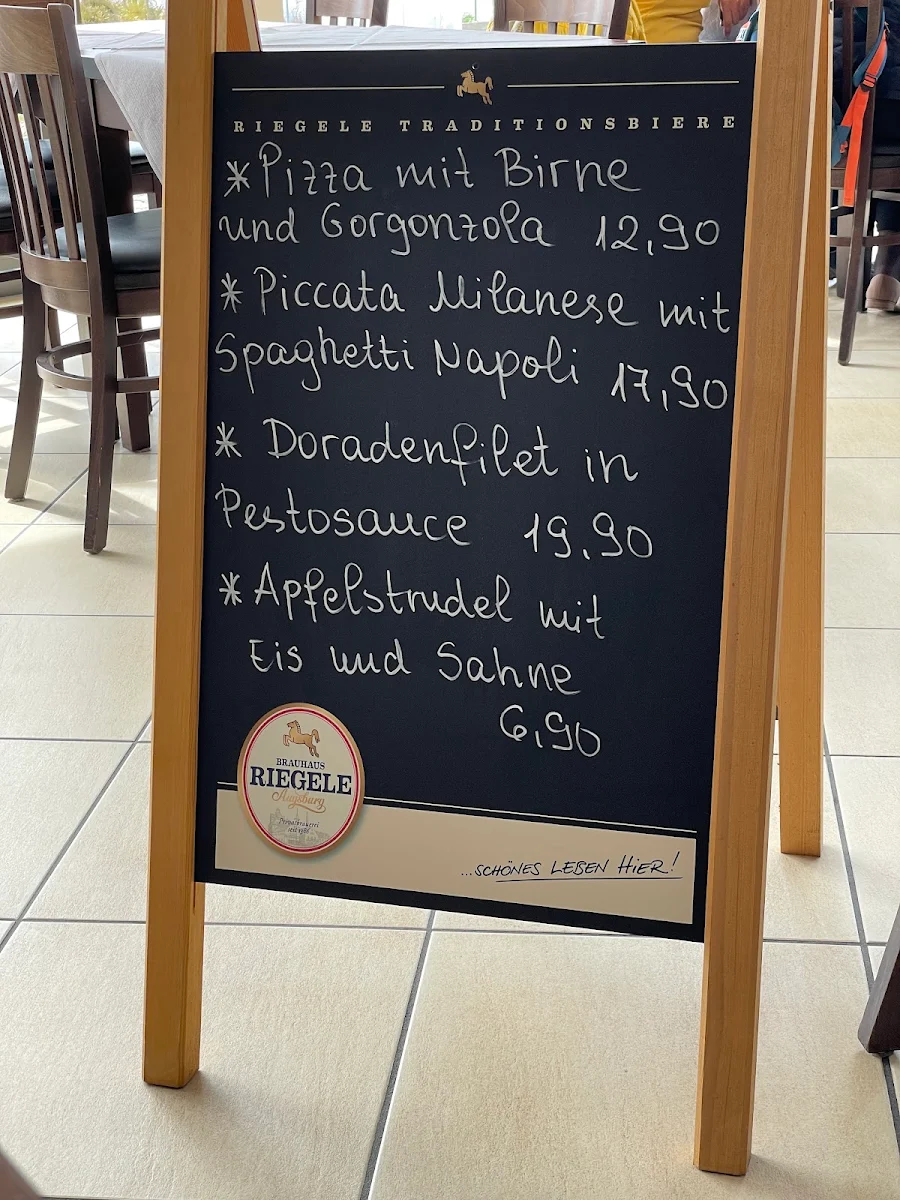 RIEGELE TRADITIONSBIERE
*Pizza mit Birne
und Gorgonzola 12,90
*Piccata Milanese mit
Spaghetti Napoli 17,90
* Doradenfilet in
Pestosauce 19,90
*Apfelstrudel mit
Eis und Sahne
6,90
BRAUHAUS
RIEGELE
Augsburg
...SCHÖNES LEBEN HIER!